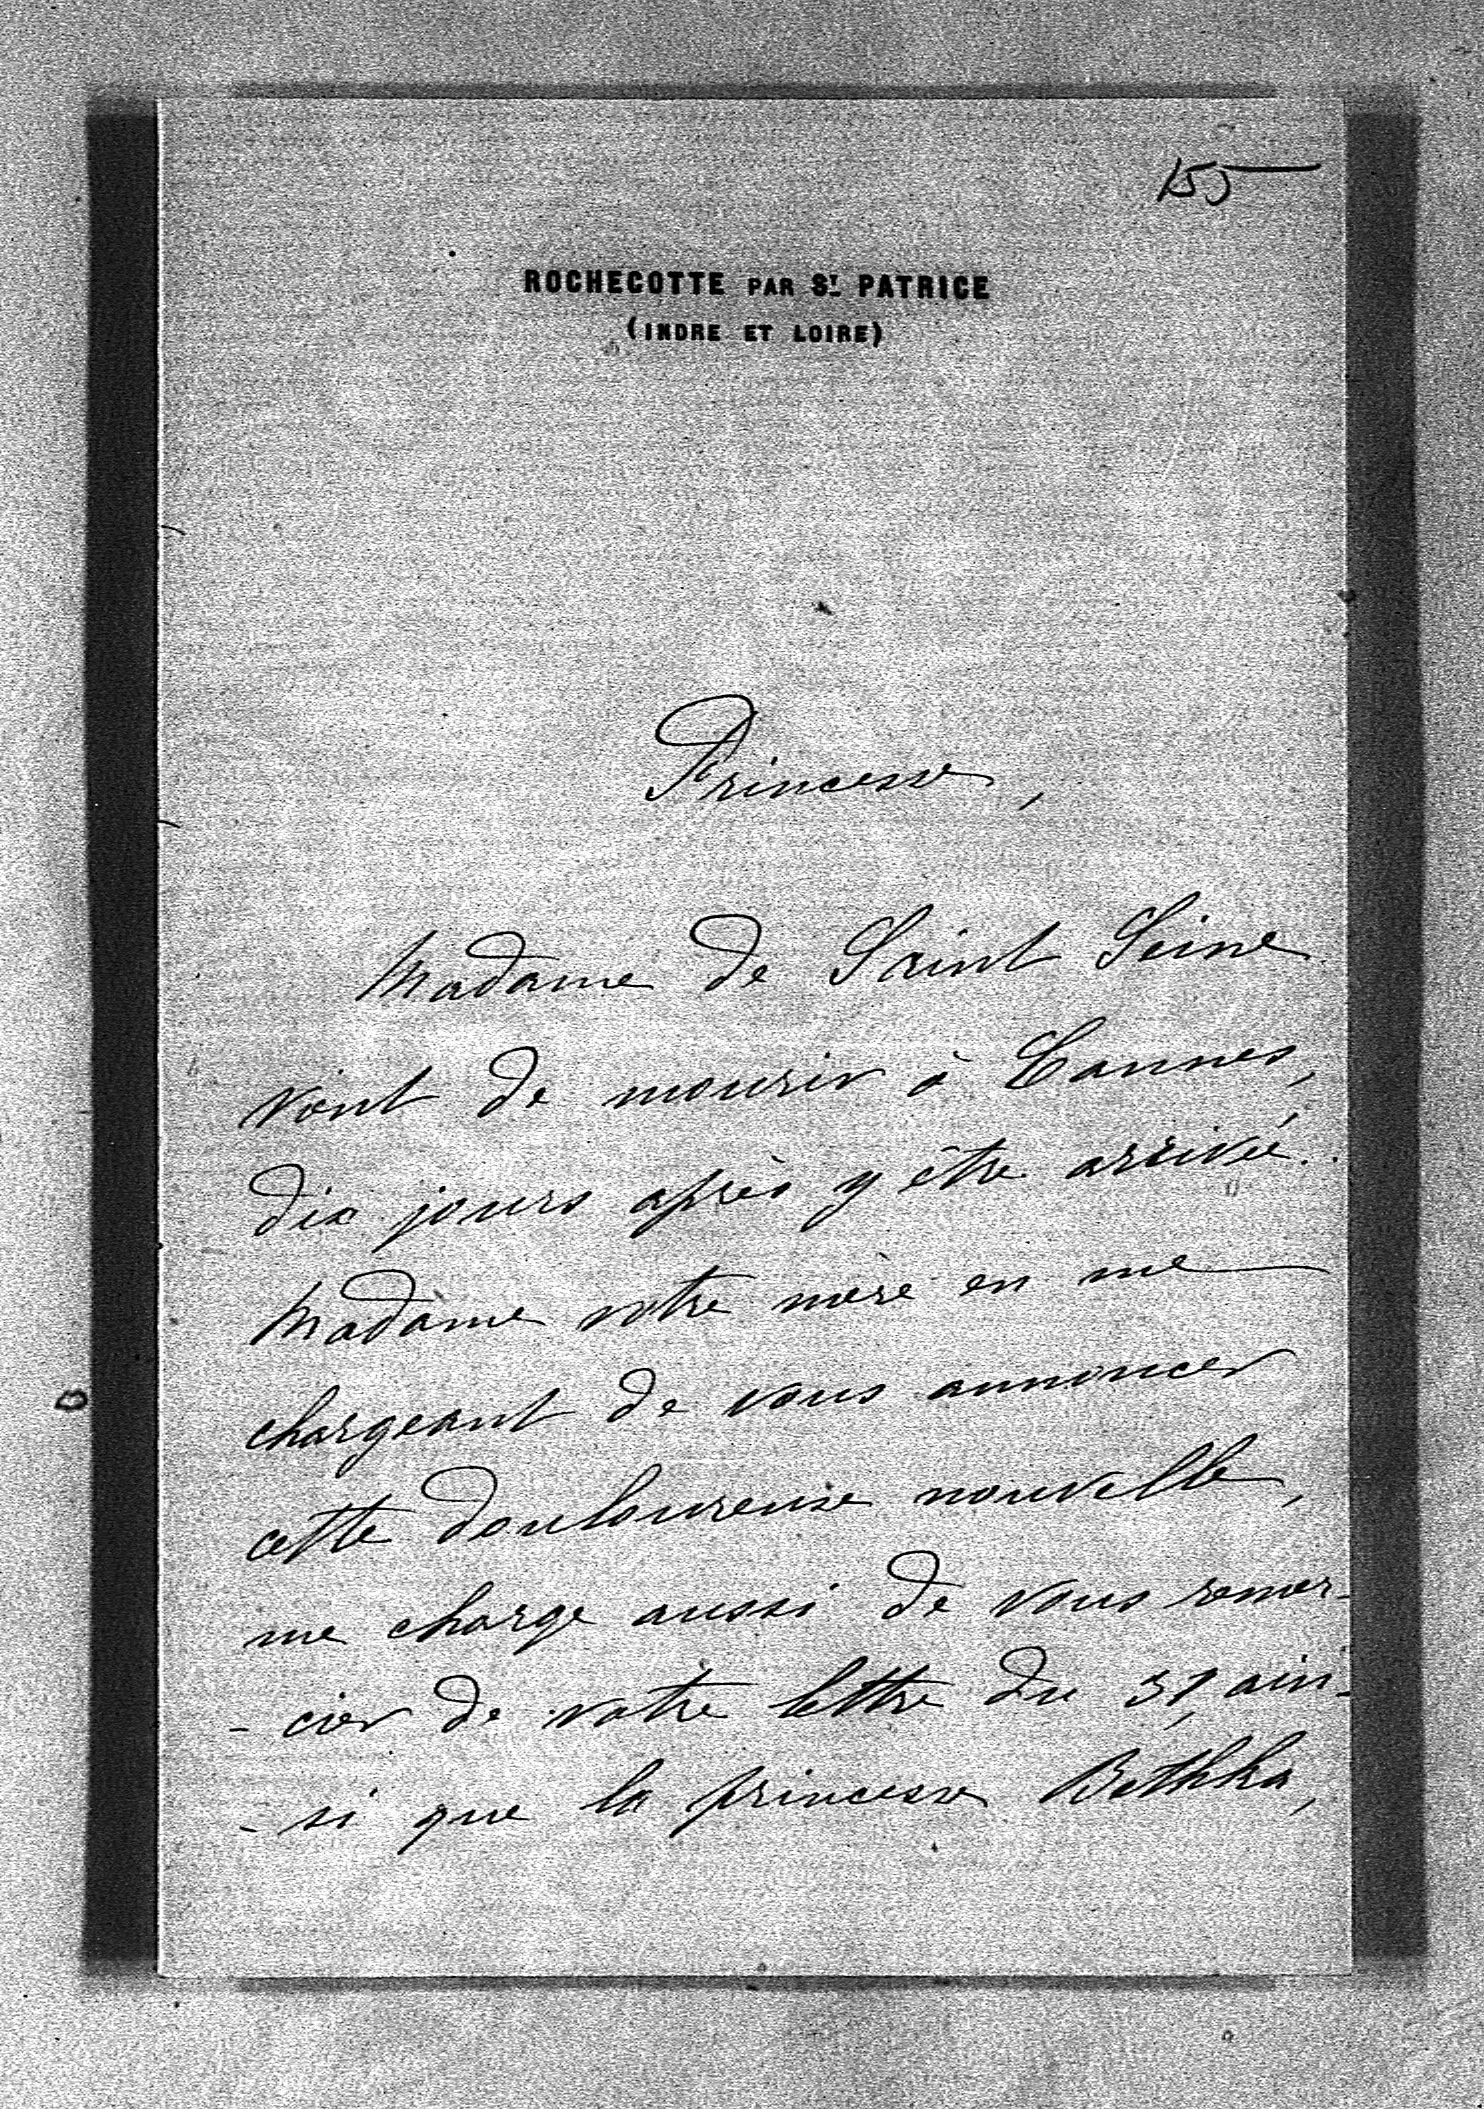 155
ROCHECOTTE PAR ST. PATRICE
(INDRE ET LOIRE)
Princesse,
Madame de Saint Seine
vient de mourir à Cannes,
dix jours après y être arrivée.
Madame votre mère en me
chargeant de vous annoncer
cette douloureuse nouvelle,
me charge aussi de vous remer-
-cier de votre lettre du 31, ain-
-si que la princesse Bethka,